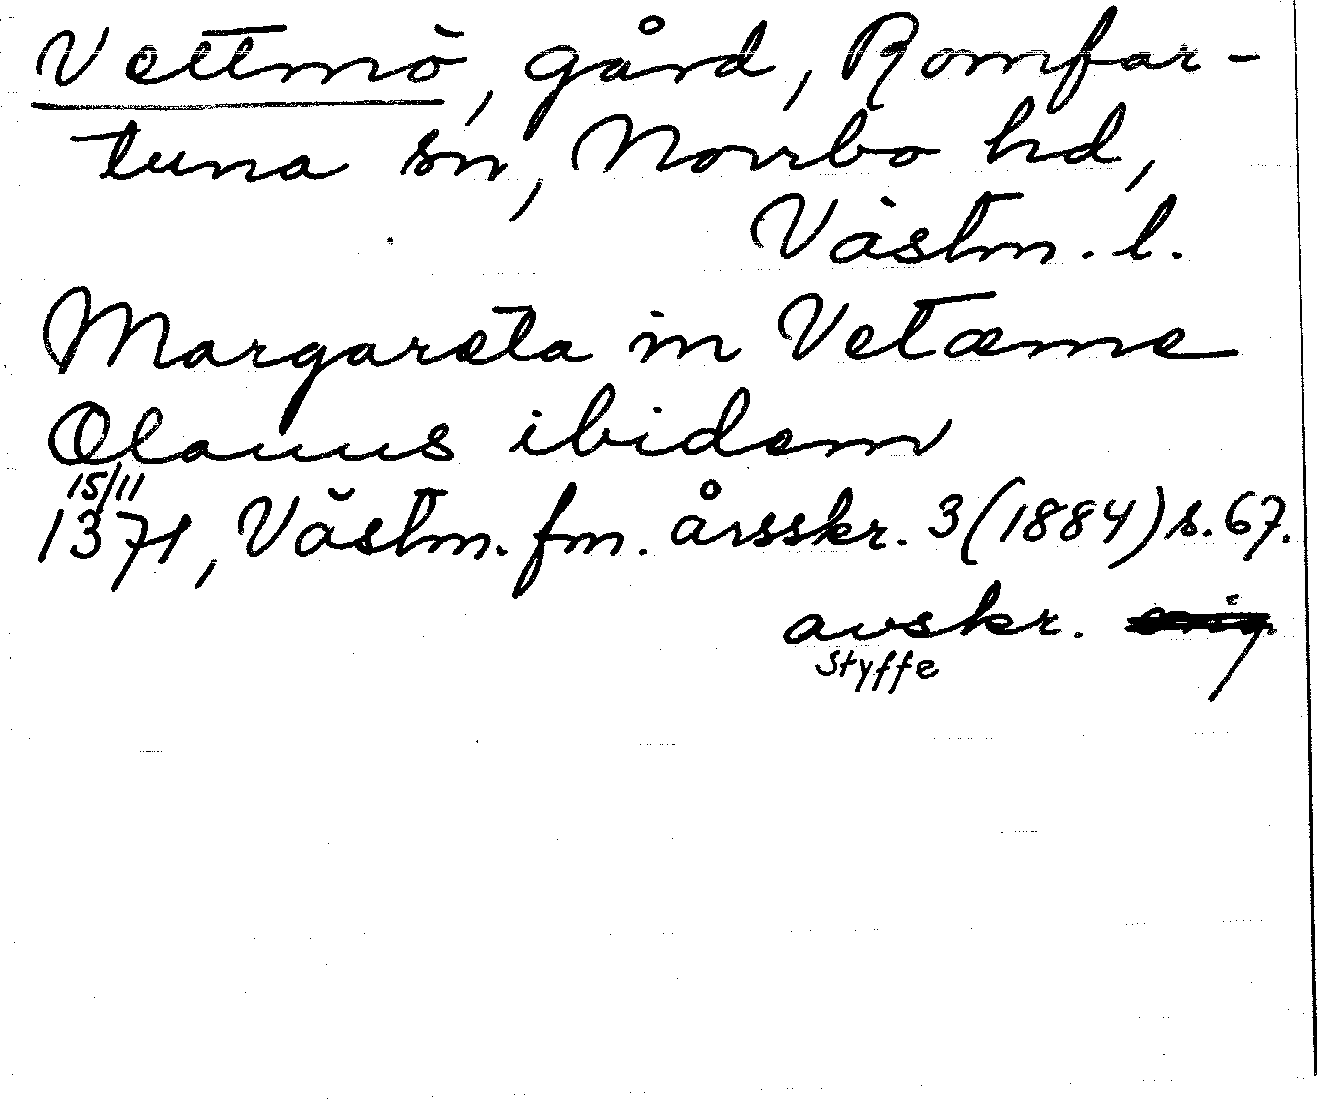 Vettmö, gård, Romfar-
tuna sn, Norrbo hd,
Västm. l.
Margareta in Vetæme
Olauus ibidem
15/11
1371, Västm. fm. årsskr. 3 (1884) s. 67.
avskr.
Styffe